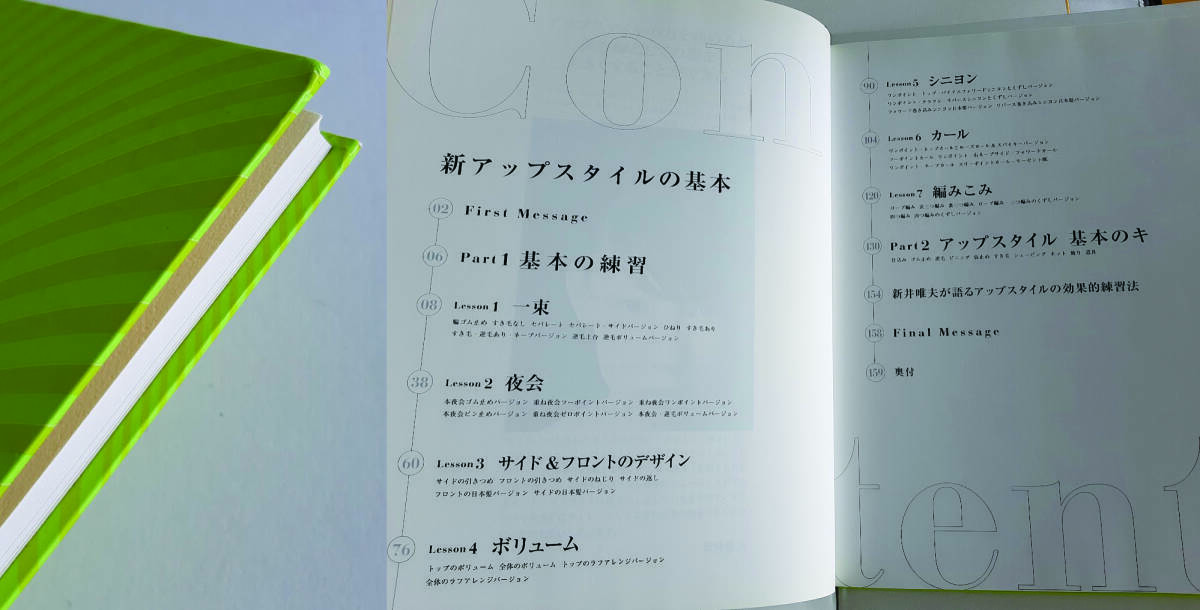 Con
新アップスタイルの基本
02 First Message
06 Part1 基本の練習
08 Lesson1 一束
輪ゴム止め すき毛なし セパレート セパレート・サイドバージョン ひねり すき毛あり
すき毛・逆毛あり・ネープバージョン 逆毛土台 逆毛ボリュームバージョン
38 Lesson2 夜会
本夜会ゴム止めバージョン 重ね夜会ツーポイントバージョン 重ね夜会ワンポイントバージョン
本夜会ピン止めバージョン 重ね夜会ゼロポイントバージョン 本夜会・逆毛ボリュームバージョン
60 Lesson3 サイド&フロントのデザイン
サイドの引きつめ フロントの引きつめ サイドのねじり サイドの返し
フロントの日本髪バージョン サイドの日本髪バージョン
76 Lesson4 ボリューム
トップのボリューム 全体のボリューム トップのラフアレンジバージョン
全体のラフアレンジバージョン
90 Lesson5 シニヨン
104 Lesson6 カール
120 Lesson7 編みこみ
ロープ編み 表三つ編み 裏三つ編み ロープ編み・三つ編みのくずしバージョン
四つ編み 四つ編みのくずしバージョン
130 Part2 アップスタイル 基本のキ
仕込み ゴム止め 逆毛 ピニング 面止め すき毛 シェーピング ネット 飾り 道具
154 新井唯夫が語るアップスタイルの効果的練習法
158 Final Message
159 奥付
tent